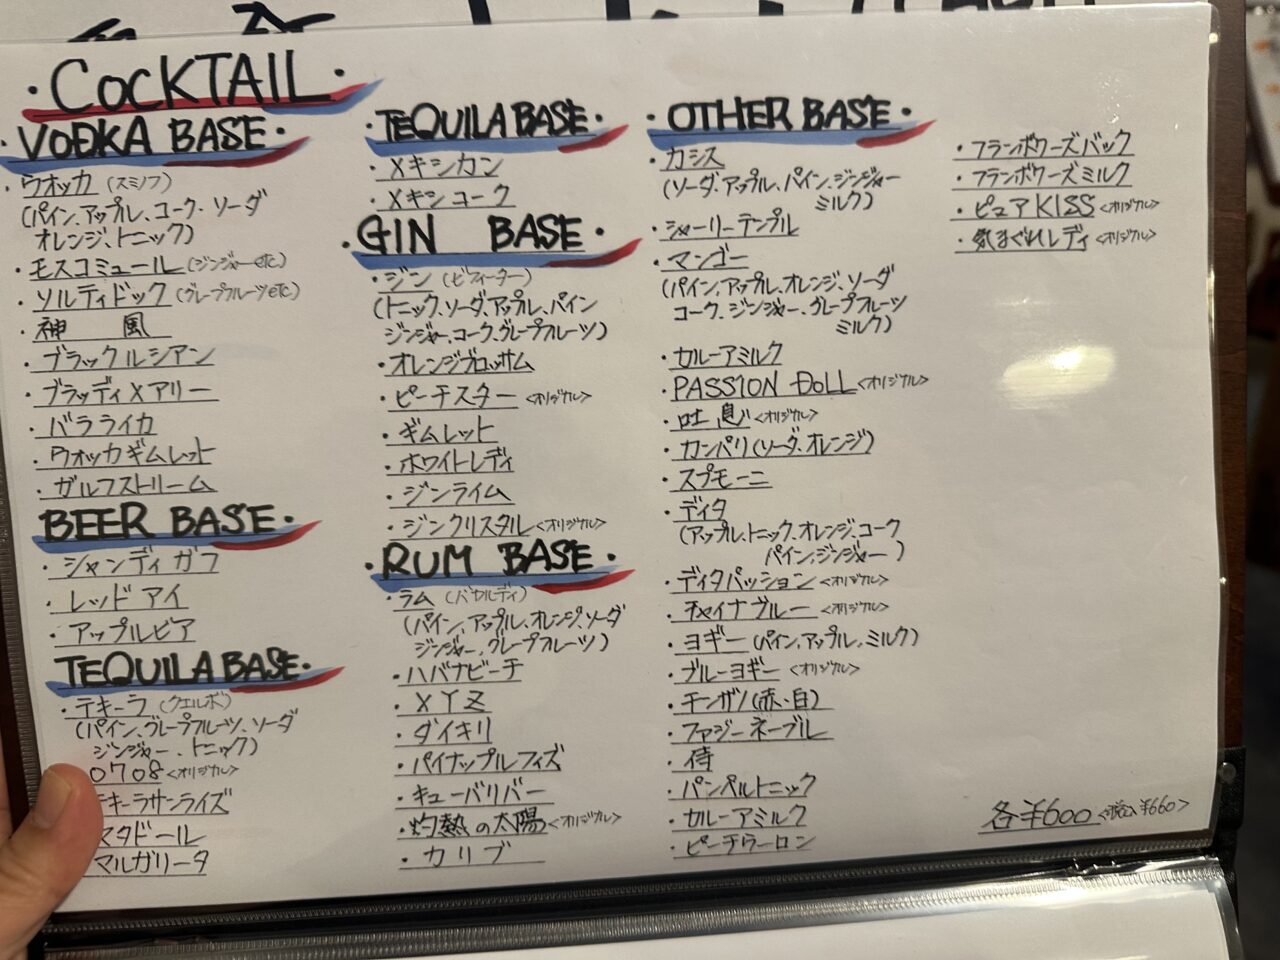 ・COCKTAIL・
・VODKA BASE・
・ウオッカ(スミノフ)
(パイン、アップル、コーク、ソーダ
オレンジ、トニック)
・モスコミュール(ジンジャーetc)
・ソルティドック(グレープフルーツetc)
・神 風
・ブラックルシアン
・ブラッディメアリー
・バラライカ
・ウオッカギムレット
・ガルフストリーム
・BEER BASE・
・シャンディガフ
・レッドアイ
・アップルビア
TEQUILA BASE・
・テキーラ(クエルボ)
(パイン、グレープフルーツ、ソーダ
ジンジャー、トニック)
0708<オリジナル>
テキーラサンライズ
マタドール
マルガリータ
・TEQUILA BASE・
・メキシカン
・メキシコーク
・GIN BASE・
・ジン(ビフィーター)
(トニック、ソーダ、アップル、パイン
ジンジャー、コーク、グレープフルーツ)
・オレンジブロッサム
・ピーチスター<オリジナル>
・ギムレット
・ホワイトレディ
・ジンライム
・ジンクリスタル<オリジナル>
・RUM BASE・
・ラム(バカルディ)
(パイン、アップル、オレンジ、ソーダ
ジンジャー、グレープフルーツ)
・ハバナビーチ
・XYZ
・ダイキリ
・パイナップルフィズ
・キューバリバー
・灼熱の太陽<オリジナル>
・カリブ
・OTHER BASE・
・カシス
(ソーダ、アップル、パイン、ジンジャー
ミルク)
・シャーリーテンプル
・マンゴー
(パイン、アップル、オレンジ、ソーダ
コーク、ジンジャー、グレープフルーツ
ミルク)
・カルーアミルク
・PASSION DOLL<オリジナル>
・吐息<オリジナル>
・カンパリ(ソーダ、オレンジ)
・スプモーニ
・ディタ
(アップル、トニック、オレンジ、コーク
パイン、ジンジャー)
・ディタパッション<オリジナル>
・チャイナブルー<オリジナル>
・ヨギー(パイン、アップル、ミルク)
・ブルーヨギー<オリジナル>
・チンザノ(赤、白)
・ファジーネーブル
・侍
・パンペルトニック
・カルーアミルク
・ピーチウーロン
・フランボワーズバック
・フランボワーズミルク
・ピュアKISS<オリジナル>
・気まぐれレディ<オリジナル>
各¥600<税込¥660>